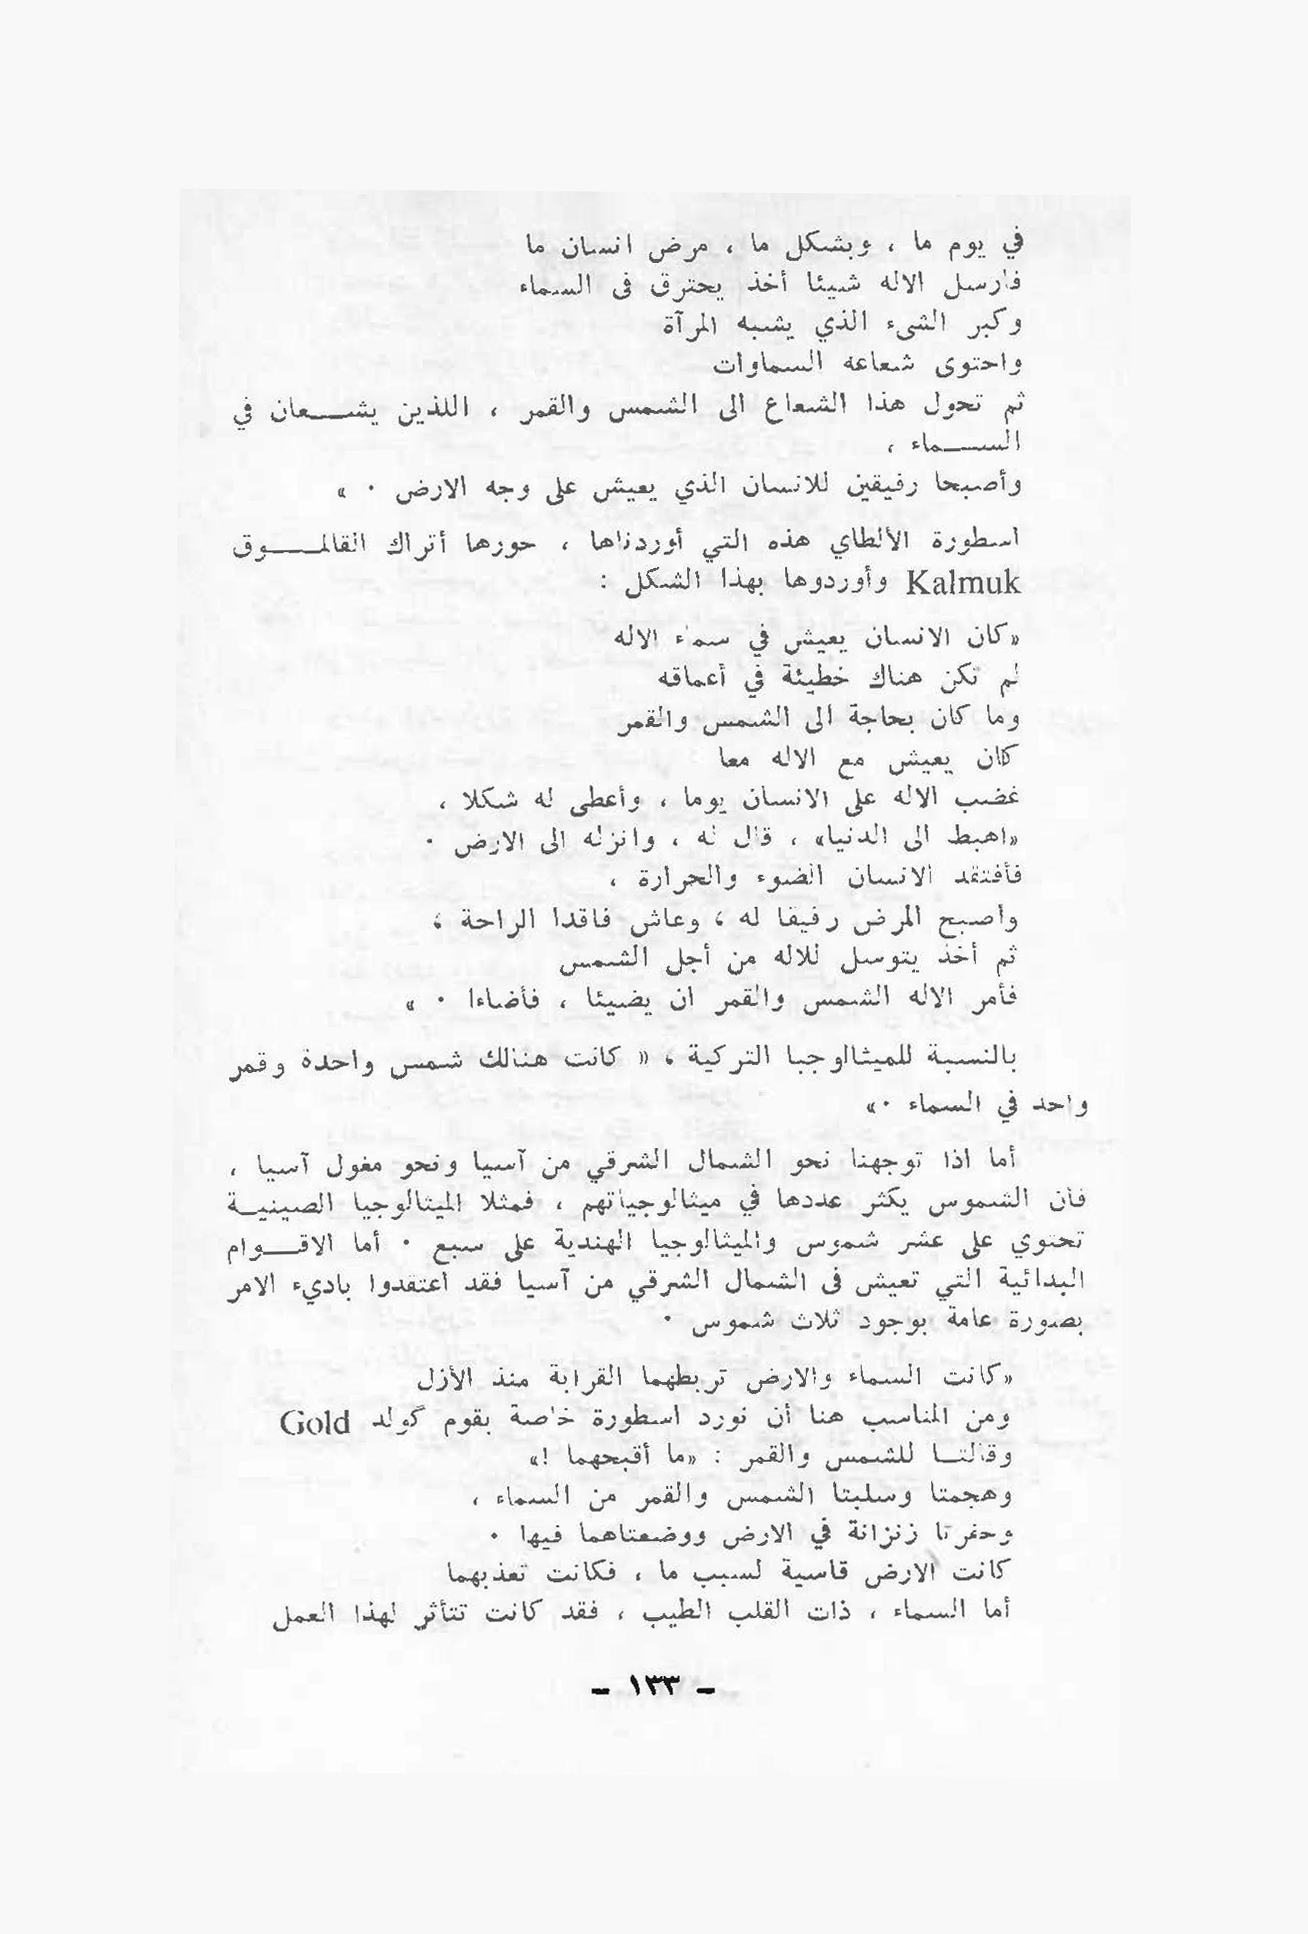 في يوم ما ، وبشكل ما ، مرض انسان ما
فارسل الاله شيئا أخذ يحترق فى السماء
وكبر الشىء الذي يشبه المرآة
واحتوى شعاعه السماوات
ثم تحول هذا الشعاع الى الشمس والقمر ، اللذين يشـــعان في
الســـماء ،
وأصبحا رفيقين للانسان الذي يعيش على وجه الارض ٠ »
اسطورة الألطاي هذه التي أوردناها ، حورها أتراك القالمـــوق
Kalmuk وأوردوها بهذا الشكل :
«كان الانسان يعيش في سماء الاله
لم تكن هناك خطيئة في أعماقه
وما كان بحاجة الى الشمس والقمر
كان يعيش مع الاله معا
غضب الاله على الانسان يوما ، وأعطى له شكلا ،
«اهبط الى الدنيا» ، قال له ، وانزله الى الارض ٠
فأفتقد الانسان الضوء والحرارة ،
وأصبح المرض رفيقا له ، وعاش فاقدا الراحة ،
ثم أخذ يتوسل للاله من أجل الشمس
فأمر الاله الشمس والقمر ان يضيئا ، فأضاءا ٠ »
بالنسبة للميثالوجبا التركية ، « كانت هنالك شمس واحدة وقمر
واحد في السماء ٠»
أما اذا توجهنا نحو الشمال الشرقي من آسيا ونحو مغول آسيا ،
فان الشموس يكثر عددها في ميثالوجياتهم ، فمثلا الميثالوجيا الصينيـة
تحتوي على عشر شموس والميثالوجيا الهندية على سبع ٠ أما الاقـــوام
البدائية التي تعيش فى الشمال الشرقي من آسيا فقد اعتقدوا باديء الامر
بصورة عامة بوجود ثلاث شموس ٠
«كانت السماء والارض تربطهما القرابة منذ الأزل
ومن المناسب هنا أن نورد اسطورة خاصة بقوم گولد Gold
وقالتـا للشمس والقمر : «ما أقبحهما !»
وهجمتا وسلبتا الشمس والقمر من السماء ،
وحفرتا زنزانة في الارض ووضعتاهما فيها ٠
كانت الارض قاسية لسبب ما ، فكانت تعذبهما
أما السماء ، ذات القلب الطيب ، فقد كانت تتأثر لهذا العمل
– ١٣٣ –